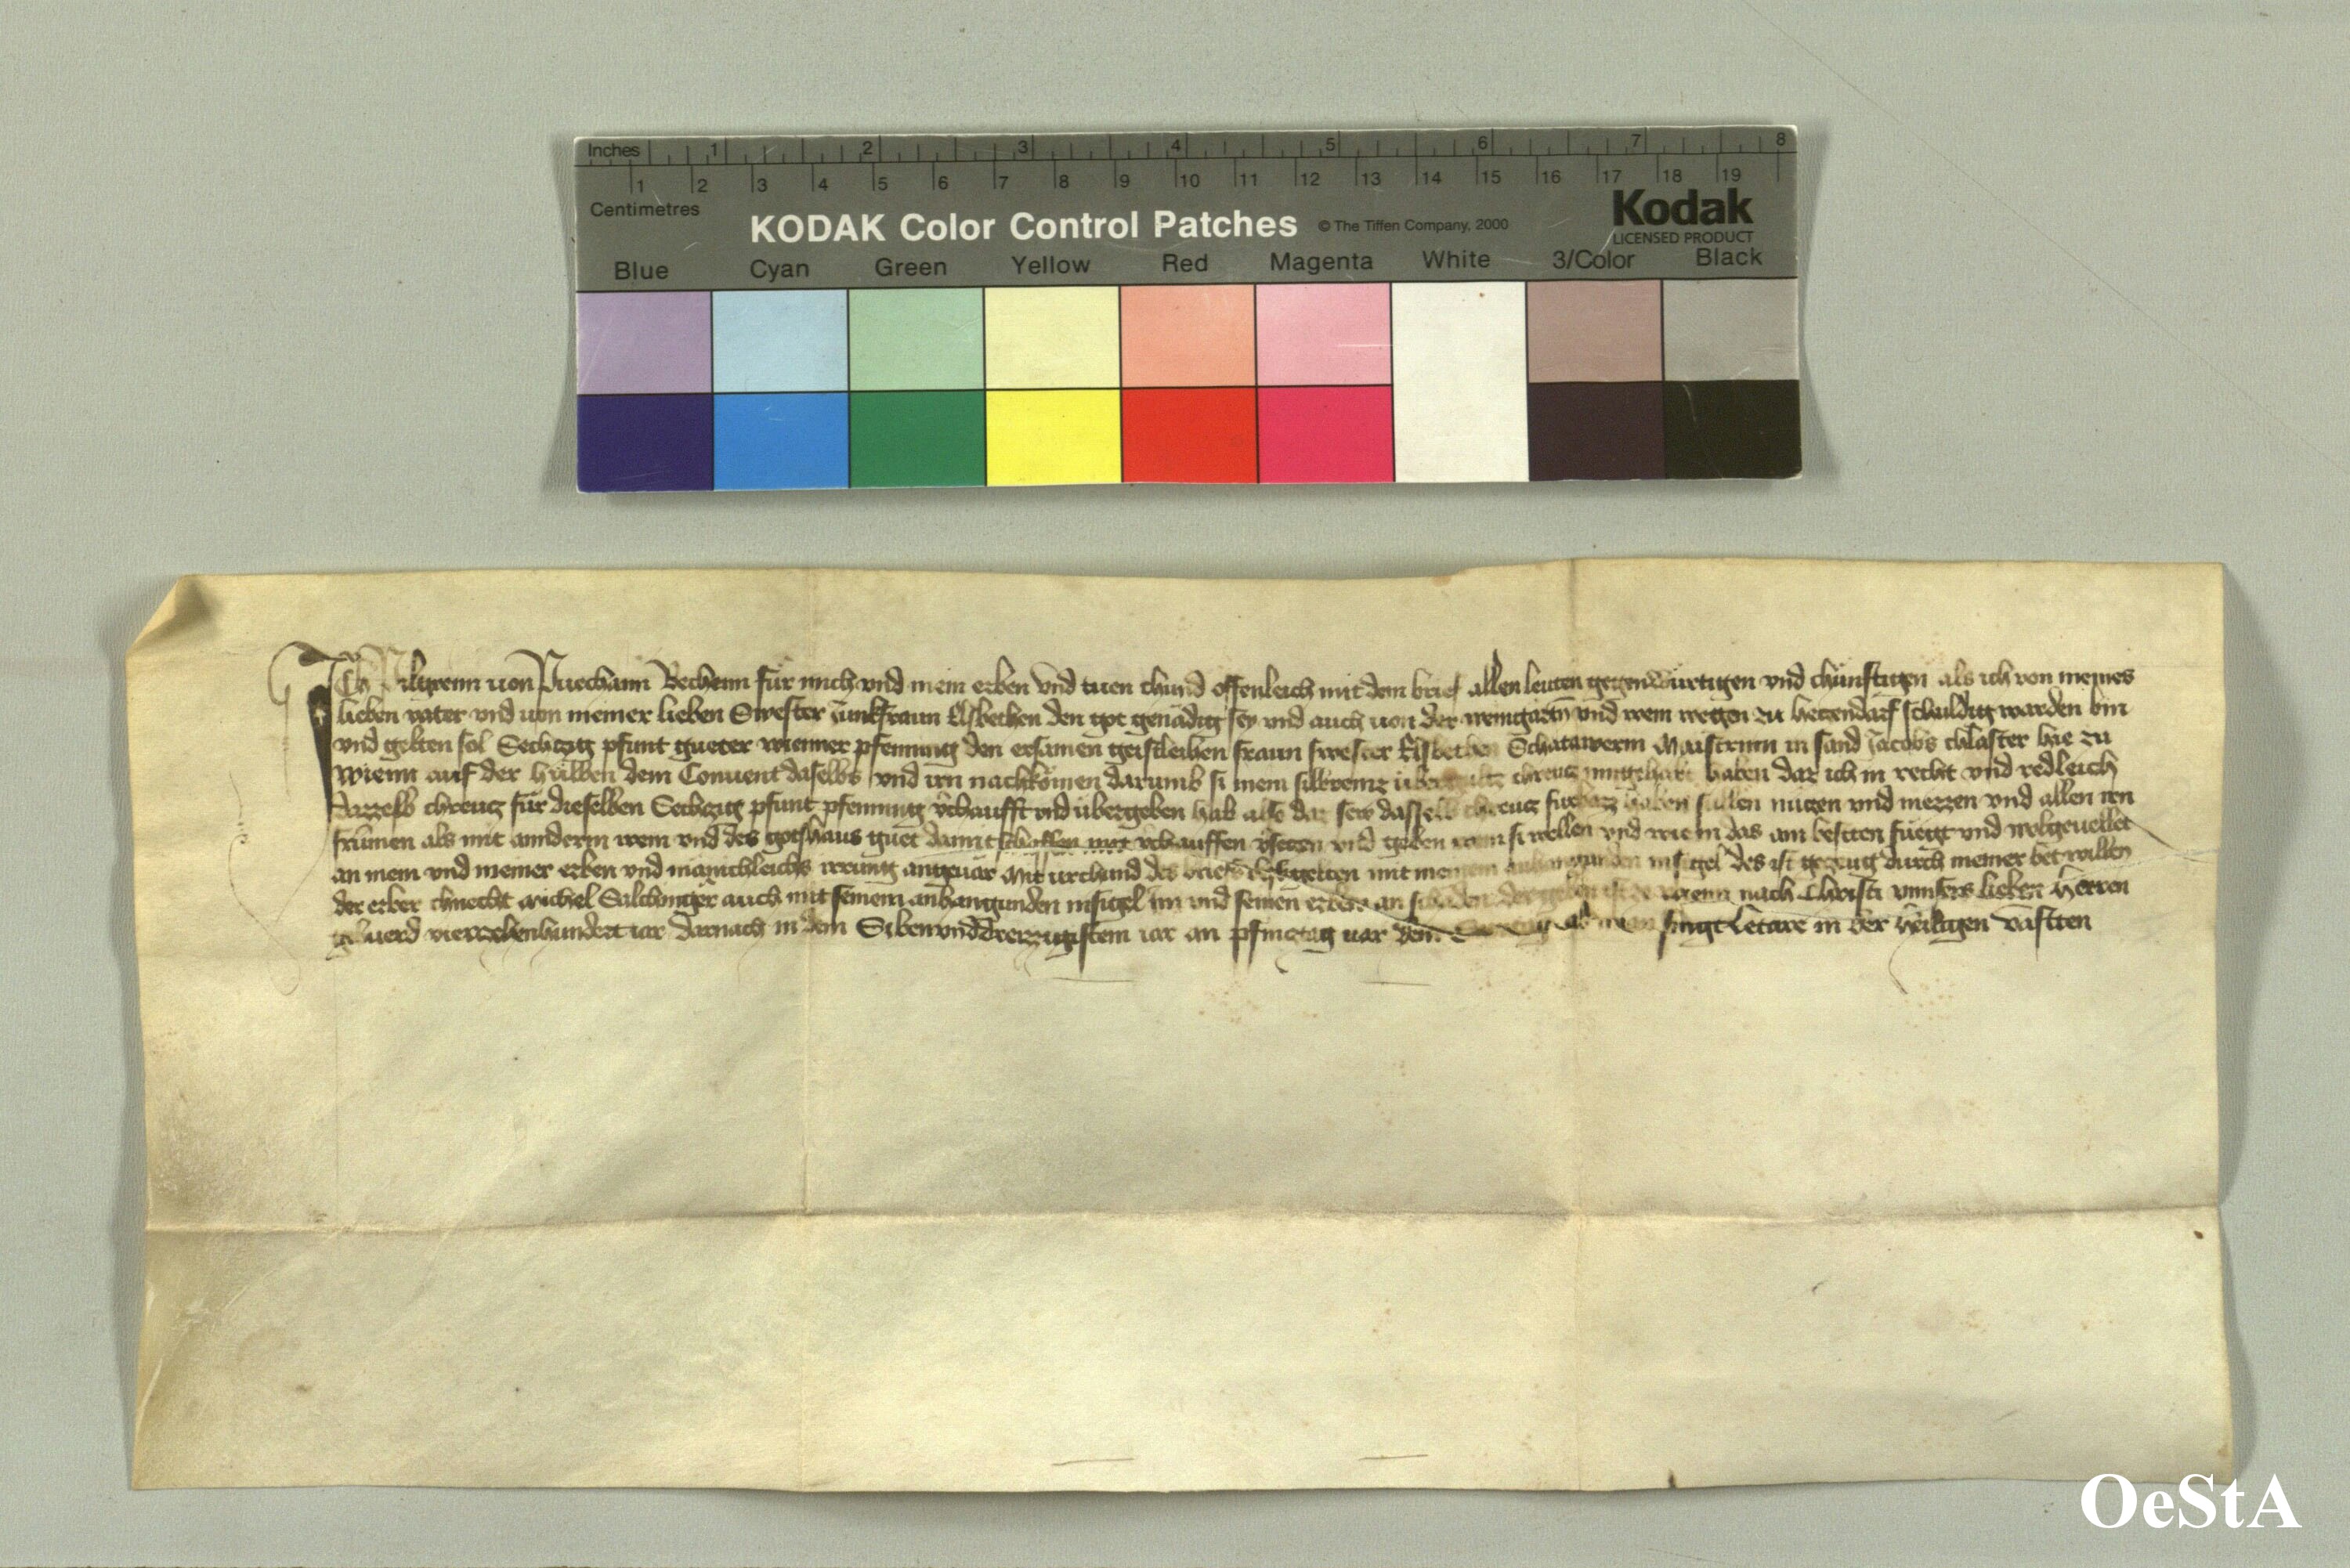 Inches 1 2 3 4 5 6 7 8
1 2 3 4 5 6 7 8 9 10 11 12 13 14 15 16 17 18 19
Centimetres
KODAK Color Control Patches © The Tiffen Company, 2000 Kodak
LICENSED PRODUCT
Blue Cyan Green Yellow Red Magenta White 3/Color Black
Ich Pilgreim uon Puechaim Bechenn für mich vnd mein erben vnd tuen chund offenleich mit dem brief allen leuten gegenwürtigen vnd chünftigen als ich von meines
lieben vater vnd uon meiner lieben Swester Junkfraun Elsbethen den got genädig sey vnd auch uon der weingarten vnd wein wegen zu hetzendarf schuldig warden bin
vnd gelten sol Sechczig pfunt gueter wienner pfenning den ersamen geistleichen fraun swester Elsbethen Maistrinn in sand Jacobs chlaster hie zu
wienn auf der Hülben dem Conuent daselbs vnd irn nachkömen darumb si mein silbreinz chreuz haben daz ich in recht vnd redleich
dazzelb chreucz für dieselben Sechczig pfunt pfenning vrchaufft vnd übergeben hab also daz sew dasselb chreucz haben sullen nüczen vnd niezzen vnd allen irn
frümen als mit annderm irem vnd des gotshaus guet damit schaffen vnd geben wem si wellen vnd wie in das am bestten füegt vnd wolgeuellet
an mein vnd meiner erben vnd irrung angeuär Mit urchund des briefs mit meinem anhangunden insigel des ist geczeug durch meiner bet willen
der erber chnecht Michel auch mit seinem anhangunden insigel im vnd seinen erben an schaden der geben ist ze wienn nach Christi vnnsers lieben herren
gebuerd vierczehenhundert iar darnach in dem Sibenvnddreizzigistem iar an pfincztag uor dem Sunntag als man singt Letare in der heiligen vastten
OeStA